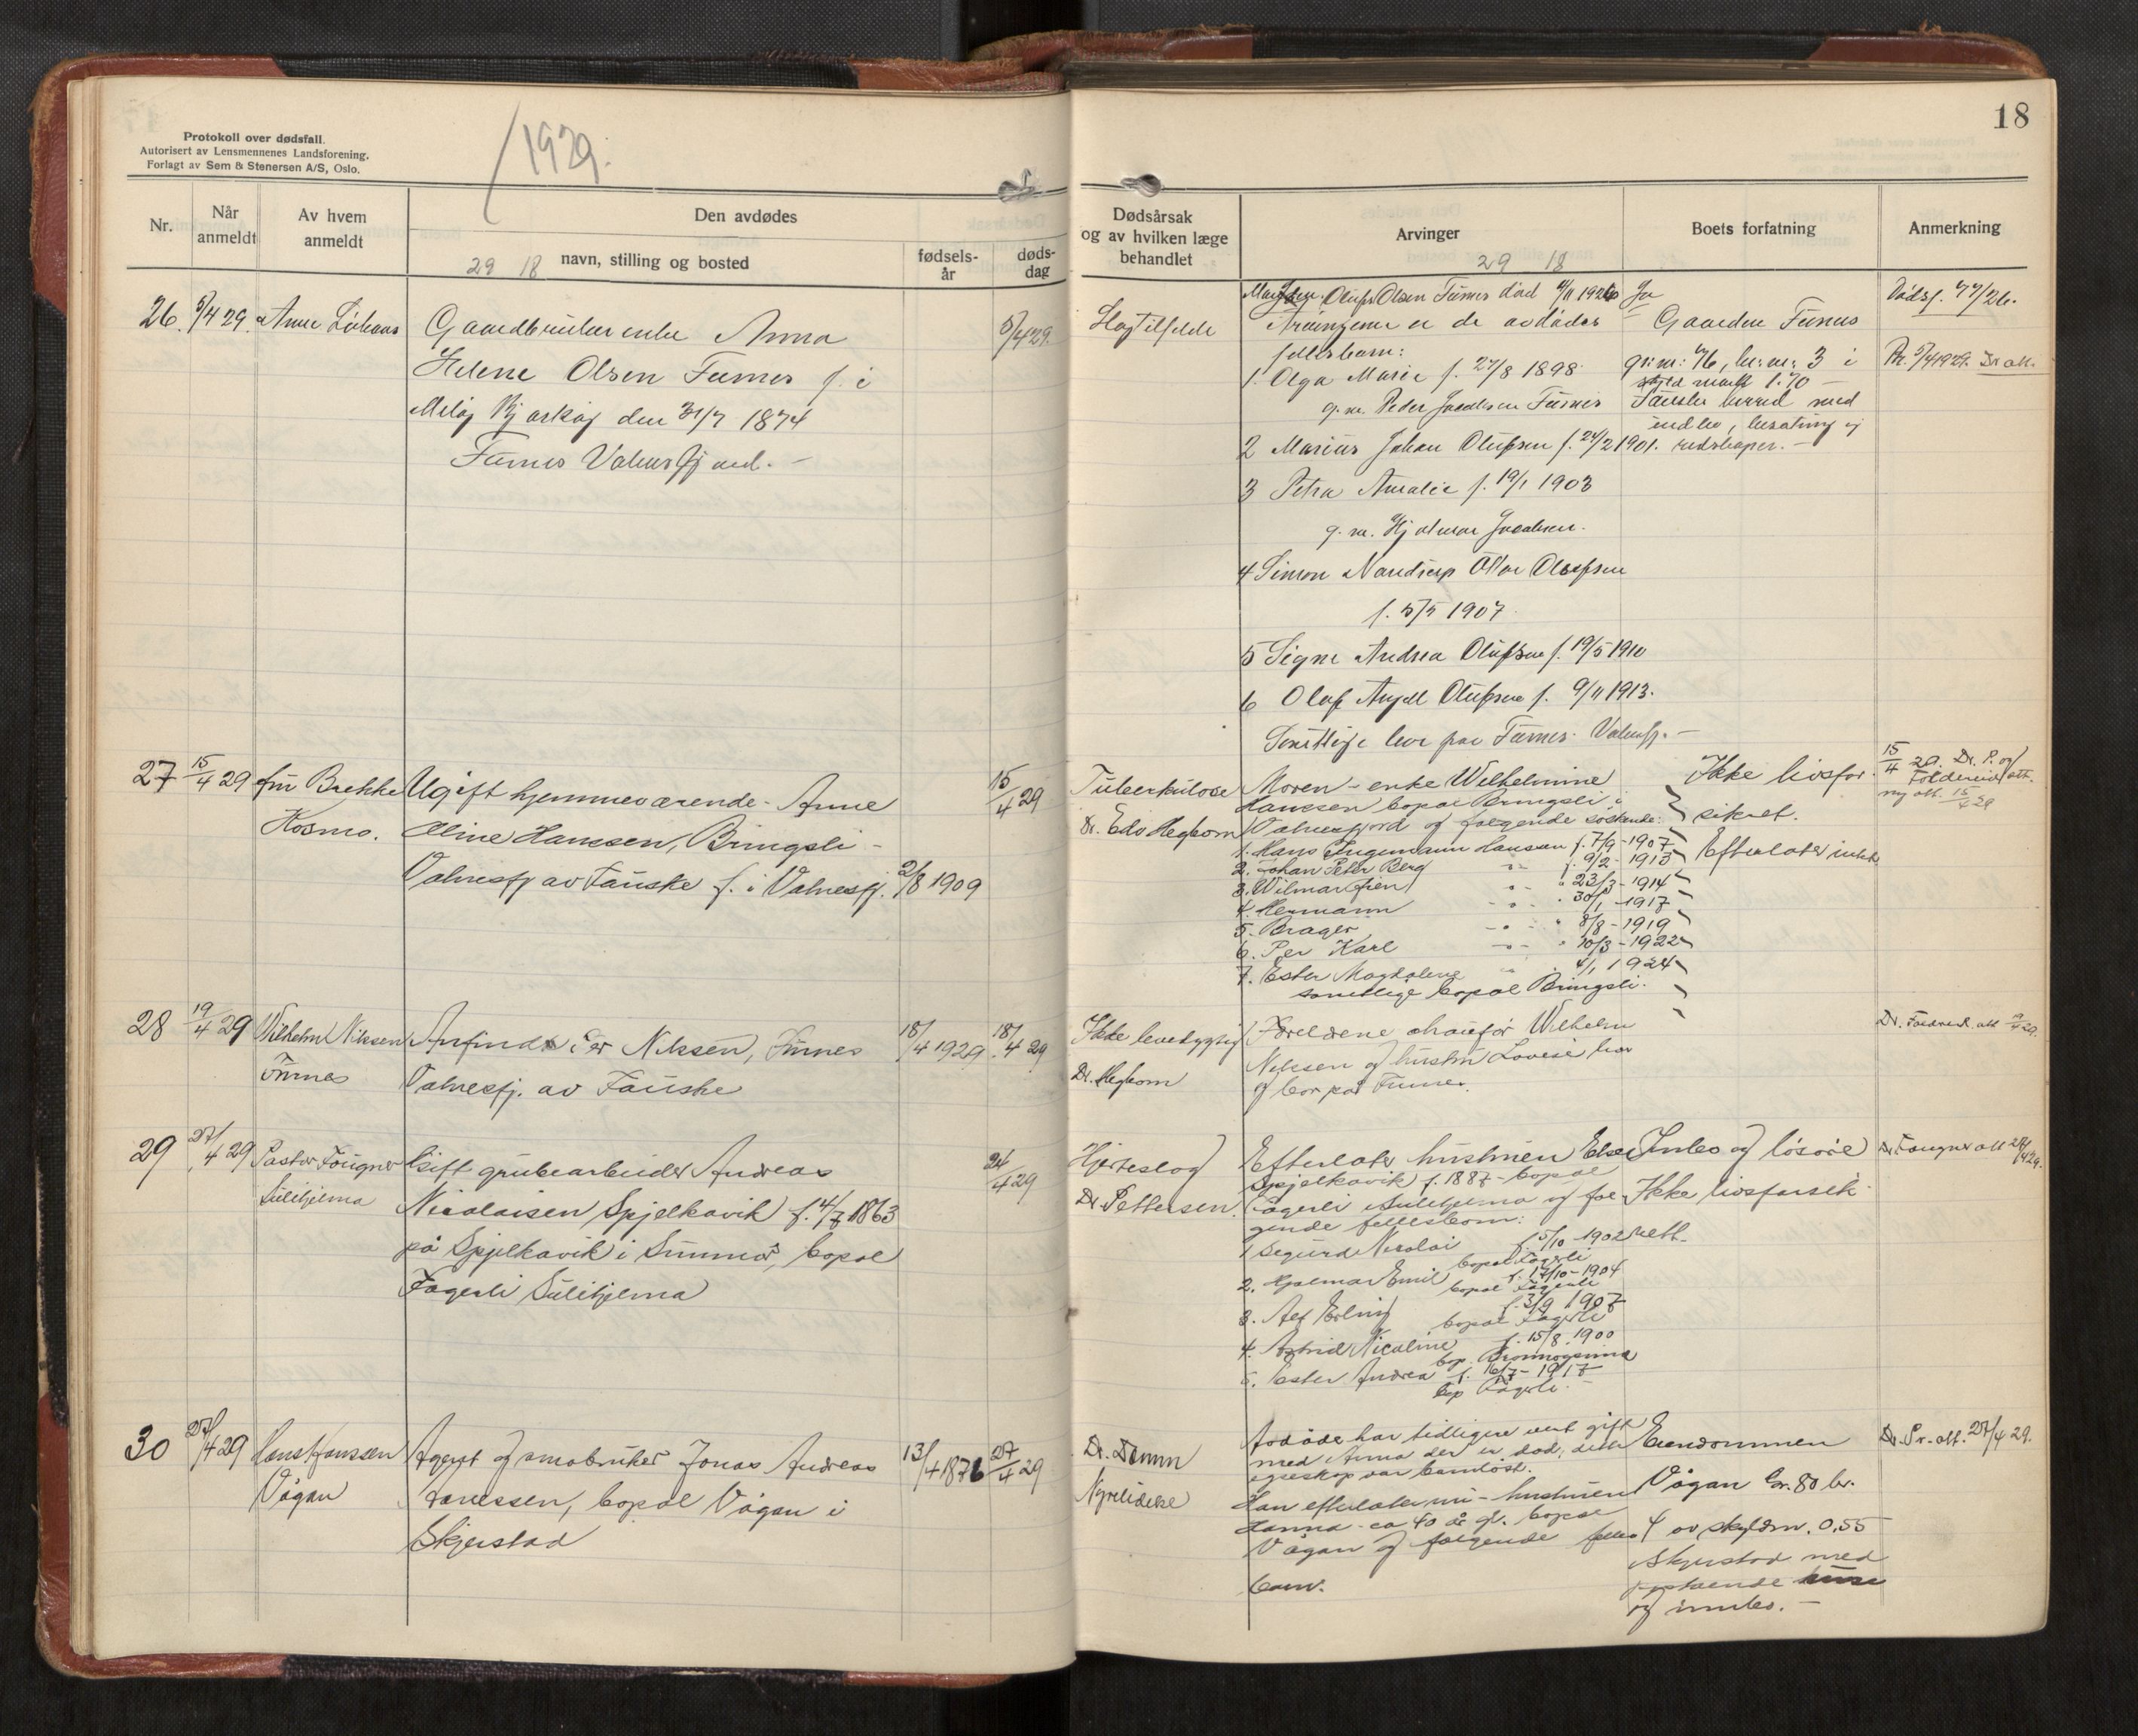 Protokoll over dødsfall.
Autorisert av Lensmennenes Landsforening.
Forlagt av Sem & Stenersen A/S, Oslo.
1929.
Nr.
Når anmeldt
Av hvem anmeldt
Den avdødes
29 18 navn, stilling og bosted
fødsels-år
døds-dag
26. 5/4 29.
Gaardbruker enke Anna
Helene Olsen Furnes f. i
den 31/7 1874
Furnes Valnesfjord. -
5/4 29.
27 15/4 29 fru Brekke
Kosmo.
Ugift hjemmeværende - Anne
Eline Hanssen, Bringsli -
Valnesfj av Fauske f. i Valnesfj. 2/8 1909
15/4 29
28 19/4 29 Wilhelm Nilssen
Furnes
Nilssen, Furnes
Valnesfj. av Fauske
18/4 1929
18/4 29
29 27/4 29 Pastor Fougner
Sulitjelma
Gift grubearbeider Andreas
Nicolaisen Spjelkavik f. 14/7 1863
på Spjelkavik i Sunnmør, bopæl
Fagerli Sulitjelma
24/4 29
30 27/4 29 Hans Hanssen
Vågan
Agent og småbruker Jonas Andreas
Hanssen, bopæl Vågan i
Skjerstad
13/4 1876
27/4 29
18
Dødsårsak og av hvilken læge behandlet
Arvinger
29 18
Boets forfatning
Anmerkning
Slagtilfelde
Manden Olufs Olsen Furnes død 4/11 1926
Arvingerne er de avdødes
fellesbarn:
1. Olga Marie f. 27/8 1898
g.m. Peder Jacobsen Furnes
2 Marius Johan Olufsen f. 24/2 1901.
3 Petra Amalie f. 19/1 1903
g.m. Hjalmar Jacobsen.
4 Simon Olufsen
f. 5/5 1907.
5 Signe Andrea Olufsen f. 19/5 1910
6 Olaf Olufsen f. 9/11 1913.
Samtlige bor paa Furnes Valnesfj. -
Ja
Gaarden Furnes
gr.nr. 76, br.nr. 3 i
skyld mark 1.70 -
Fauske herred med
indbo, besætning og
redskaper. -
Dødsf. 77/26.
Tuberkulose
Dr. Edv Hegbom
Moren - enke Wilhelmine
Hanssen bopæl Bringsli i
Valnesfjord og følgende søskende:
1. Hans Ingemann Hanssen f. 7/9 - 1907
2. Johan Peter Berg f. 9/2 - 1913
3. Wilmar 23/3 - 1914
4. Hermann 30/1 - 1917
5. Brager 8/8 - 1919
6. Per Karl 10/3 - 1922
7. Ester Magdalene 4/1 1924
samtlige bopæl Bringsli.
Ikke livsfor-
sikret.
Efterlater intet
15/4 29.
Ikke levedygtig
Dr. Hegbom
Foreldrene chaufør Wilhelm
Nilssen og hustru Lovise har
og bor på Furnes.
19/4 29.
Hjerteslag
Dr. Pettersen.
Efterlater hustruen Else
Spjelkavik f. 1887 - bopæl
Fagerli Sulitjelma og føl-
gende fellesbarn:
1 Sigurd Nicolai f. 5/10 - 1902
bopæl Fagerli
2. Hjalmar Emil f. 17/10 - 1904
bopæl Fagerli
3. Alf Erling f. 3/9 1907
bopæl Fagerli
4. Astrid Nicoline f. 15/8. 1900
bop.
5. Ester Andrea f. 16/7 - 1917
bop Fagerli.
Innbo og løsøre
Ikke livsforsik-
rett.
Dr. Fougner att 27/4 29.
Dr. Damm
Nyrelidelse
Avdøde har tidligere vert gift
med Anna der er død, dette
egteskap var barnløst.
Han efterlater nu - hustruen
Hanna - ca 40 år gl. bopæl
Vågan og følgende felles
barn.
Eiendommen
Vågan Gr. 80 br.
4 av skyldm. 0,55
Skjerstad med
påstaende huse
og innbo. -
27/4 29.